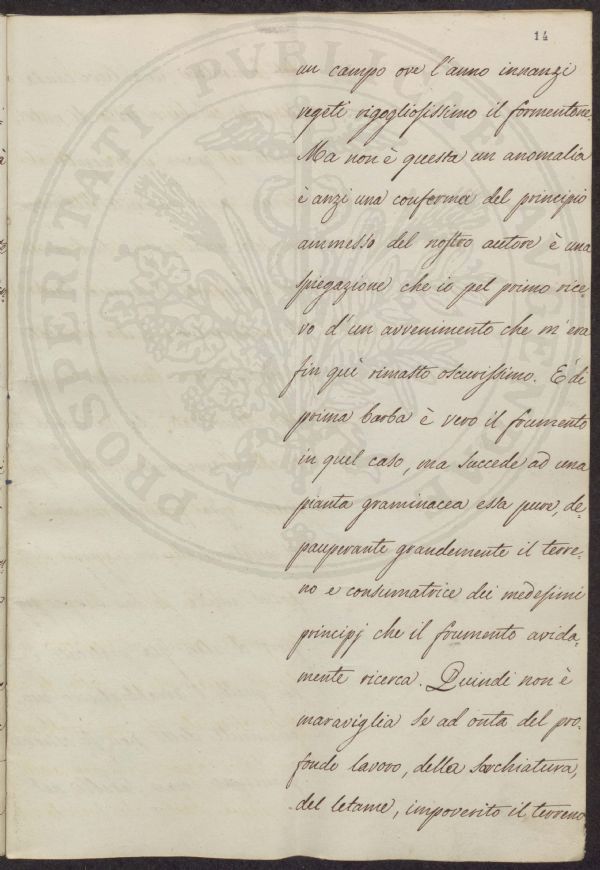 14
un campo ove l'anno innanzi
vegeti rigogliosissimo il formentone.
Ma non è questa un anomalia
è anzi una conferma del principio
ammesso del nostro autore è una
spiegazione che io pel primo rice-
vo d'un avvenimento che m'era
fin qui rimasto oscurissimo. E' di
prima barba è vero il frumento
in quel caso, ma succede ad una
pianta graminacea essa pure, de-
pauperante grandemente il terre-
no e consumatrice dei medesimi
principj che il frumento avida-
mente ricerca. Quindi non è
maraviglia se ad onta del pro-
fondo lavoro, della sarchiatura,
del letame, impoverito il terreno
PROSPERITATI PUBLICAE AUGENDAE